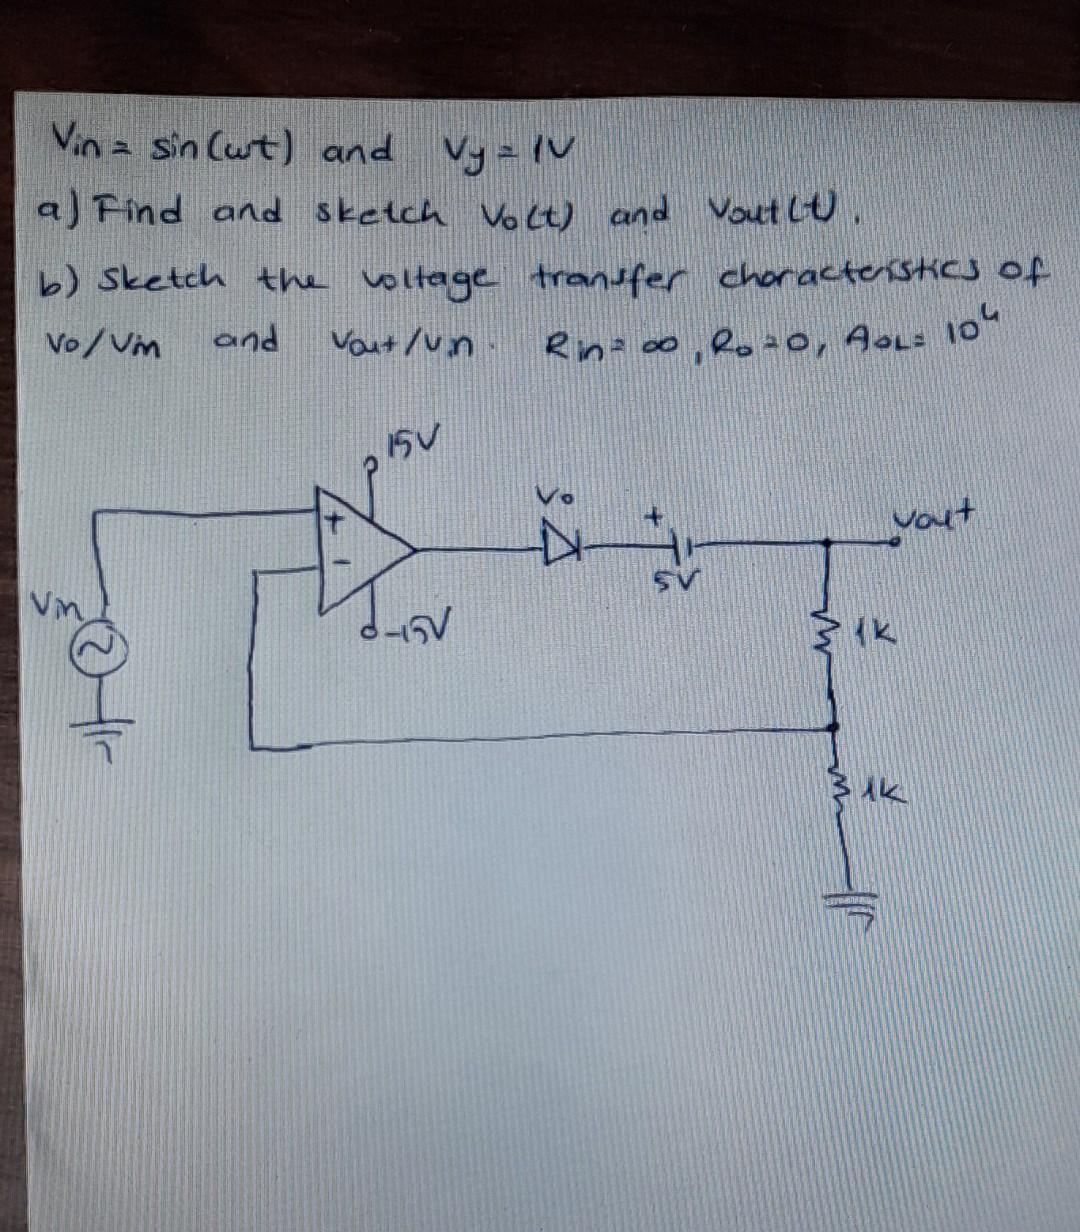 Vin = sin(wt) and Vy = 1V
a) Find and sketch Vo(t) and Vout(t).
b) Sketch the voltage transfer characteristics of
Vo/Vin and Vout/Vin. Rin = ∞, Ro = 0, AOL = 10⁴
15V
+
-
-15V
Vin
Vo
+
5V
Vout
1K
1K